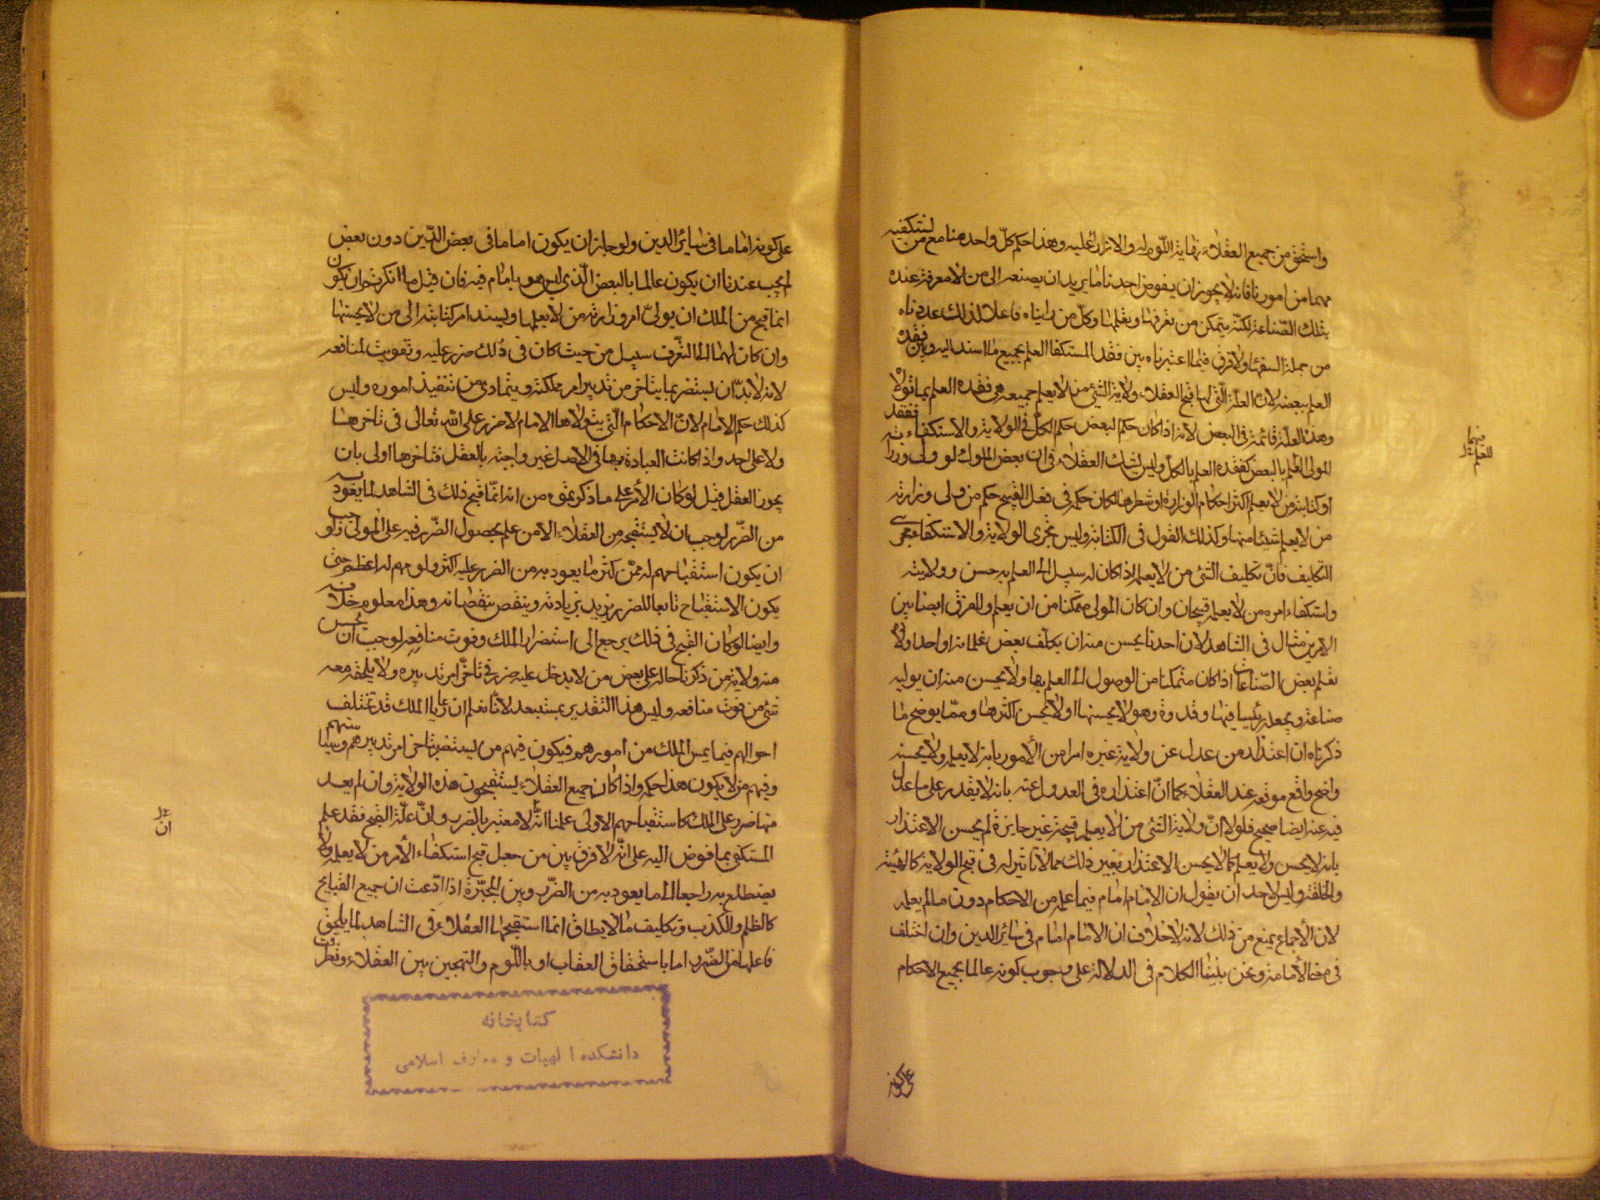 واستحق من جميع العقلاء نهاية اللوم له والازراء عليه وهذا حكم كل واحد منا مع من استكفيه
مهما من امورنا فانه لا يجوز ان يفوض احدنا ما يريد ان يصنعه الى من لا معرفة عنده
بتلك الصناعة لكنه يتمكن من تعرفها وتعلمها وكل من رايناه فاعلا لذلك عددناه
من جملة السفهاء ولا فرق فيما اعتبرناه بين فقد المستكفا العلم بجميع ما اسند اليه وبين فقده
العلم ببعضه لان العلة التي لها قبح العقلاء ولاية الشئ من لا يعلم جميعه هي فقده العلم بما تولاه
وهذه العلة قائمة في البعض لانه اذا كان حكم البعض حكم الكل في الولاية والاستكفاء به ففقد
المولى العلم بالبعض كفقده العلم بالكل وليس يشك العقلاء في ان بعض الملوك لو ولى وزارته
او كتابته من لا يعلم اكثر احكام الوزارة او شطرها لكان حكمه في فعل القبيح حكم من ولى وزارته
من لا يعلم شيئا منها وكذلك القول في الكتابة وليس تجرى الولاية والاستكفاء مجرى
التكليف فان تكليف الشئ من لا يعلم اذا كان له سبيل الى العلم به حسن وولايته
واستكفاء امره من لا يعلمه قبيحان وان كان المولى متمكنا من ان يعلم والفرق ايضا بين
الامرين مثال في الشاهد لان احدنا يحسن منه ان يكلف بعض غلمانه او احد اولاده
تعلم بعض الصناعات اذا كان متمكنا من الوصول الى العلم بها ولا يحسن منه ان يوليه
صناعة ويجعله رئيسا فيها وقدوة وهو لا يحسنها او لا يحسن اكثرها ومما يوضح ما
ذكرناه ان اعتذار من عدل عن ولاية غيره امرا من الامور بانه لا يعلمه ولا يحسنه
واضح واقع موقعه عند العقلاء كما ان اعتذاره في العدول عنه بانه لا يقدر على ما عدل
فيه عنه ايضا صحيح فلولا ان ولاية الشئ من لا يعلمه قبيحة غير جايزة لم يحسن الاعتذار
بانه لا يحسن ولا يعلم كما لا يحسن الاعتذار بغير ذلك مما لا تاثير له في قبح الولاية كالهيئة
والخلقة وليس لاحد ان يقول ان الامام امام فيما علمه من الاحكام دون ما لم يعلمه
لان الاجماع يمنع من ذلك لانه لا خلاف ان الامام امام في سائر الدين وان اختلف
في صفة الامامة ونحن بنينا الكلام في الدلالة على وجوب كونه عالما بجميع الاحكام
على كونه
على كونه اماما في سائر الدين ولو جاز ان يكون اماما في بعض الدين دون بعض
لم يجب عندنا ان يكون عالما بالبعض الذي ليس هو بامام فيه فان قيل ما انكرتم ان يكون
انما قبح من الملك ان يولي امر وزارته من لا يعلمها ويسند امر كتابته الى من لا يحسنها
وان كان لهما الى التعرف سبيل من حيث كان في ذلك ضرر عليه وتفويت لمنافعه
لانه لا بد ان يستضر بما يتاخر من تدبير امر مملكته ويتمادى من تنفيذ اموره وليس
كذلك حكم الامام لان الاحكام التي يتولاها الامام لا ضرر على الله تعالى في تاخرها
ولا على احد واذا كانت العبادة بها في الاصل غير واجبة بالعقل فتاخرها اولى بان
يجوز العقل قيل لو كان الامر على ما ذكرتموه من انه انما قبح ذلك في الشاهد لما يعود به
من الضرر لوجب ان لا يستقبحه من العقلاء الا من علم بحصول الضرر فيه على المولى ولوجب
ان يكون استقباحهم له ممن كثر ما يعود به من الضرر عليه اكثر ولومهم له اعظم حتى
يكون الاستقباح تابعا للضرر يزيد بزيادته وينقص بنقصانه وهذا معلوم خلافه
وايضا لو كان القبح في ذلك يرجع الى استضرار الملك وفوت منافعه لوجب ان يحسن
منه ولاية من ذكرنا حاله على بعض من لا يدخل عليه ضرر في تاخر امر تدبيره ولا يلحقه معه
شئ من فوت منافعه وليس هذا التقدير بمستبعد لانا نعلم ان رعايا الملك قد تختلف
احوالهم فيما يمس الملك من امورهم فيكون فيهم من يستضر بتاخر امر تدبيرهم وسياستهم
وفيهم من لا يكون هذا حكمه واذا كان جميع العقلاء يستقبحون هذه الولاية وان لم يعد
منها ضرر على الملك كاستقباحهم الاولى علمنا انه لا معتبر بالضرر وان علة القبح فقد علم
المستكفى بما فوض اليه على انه لا فرق بين من جعل قبح استكفاء الامر من لا يعلمه ولا
يضطلع به راجعا الى ما يعود به من الضرر وبين المجبرة اذا ادعت ان جميع القبايح
كالظلم والكذب وتكليف ما لا يطاق انما استقبحها العقلاء في الشاهد لما يلحق
فاعلها من الضرر اما باستحقاق العقاب او باللوم والتهجين بين العقلاء
كتابخانه
دانشكده الهيات و معارف اسلامى